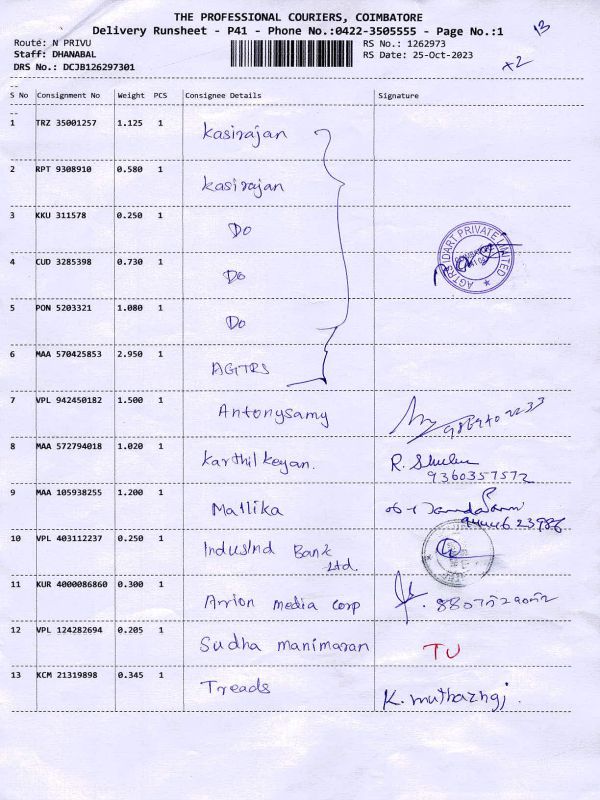 THE PROFESSIONAL COURIERS, COIMBATORE
Delivery Runsheet - P41 - Phone No.:0422-3505555 - Page No.:1
13
Route: N PRIVU RS No.: 1262973
Staff: DHANABAL RS Date: 25-Oct-2023
DRS No.: DCJB126297301
x2
--
S No Consignment No Weight PCS Consignee Details Signature
--
1 TRZ 35001257 1.125 1 Kasirajan
2 RPT 9308910 0.580 1 Kasirajan
3 KKU 311578 0.250 1 Do
4 CUD 3285398 0.730 1 Do
AGTRS IDART PRIVATE LIMITED
5 PON 5203321 1.080 1 Do
6 MAA 570425853 2.950 1 AGTRS
7 VPL 942450182 1.500 1 Antonysamy
8 MAA 572794018 1.020 1 Karthikeyan. R.
9360357572
9 MAA 105938255 1.200 1 Mallika
10 VPL 403112237 0.250 1 IndusInd Bank
Ltd.
11 KUR 4000086860 0.300 1 Arrion media corp 8807529052
12 VPL 124282694 0.205 1 Sudha manimaran TU
13 KCM 21319898 0.345 1 Treads K. muthazhgi.